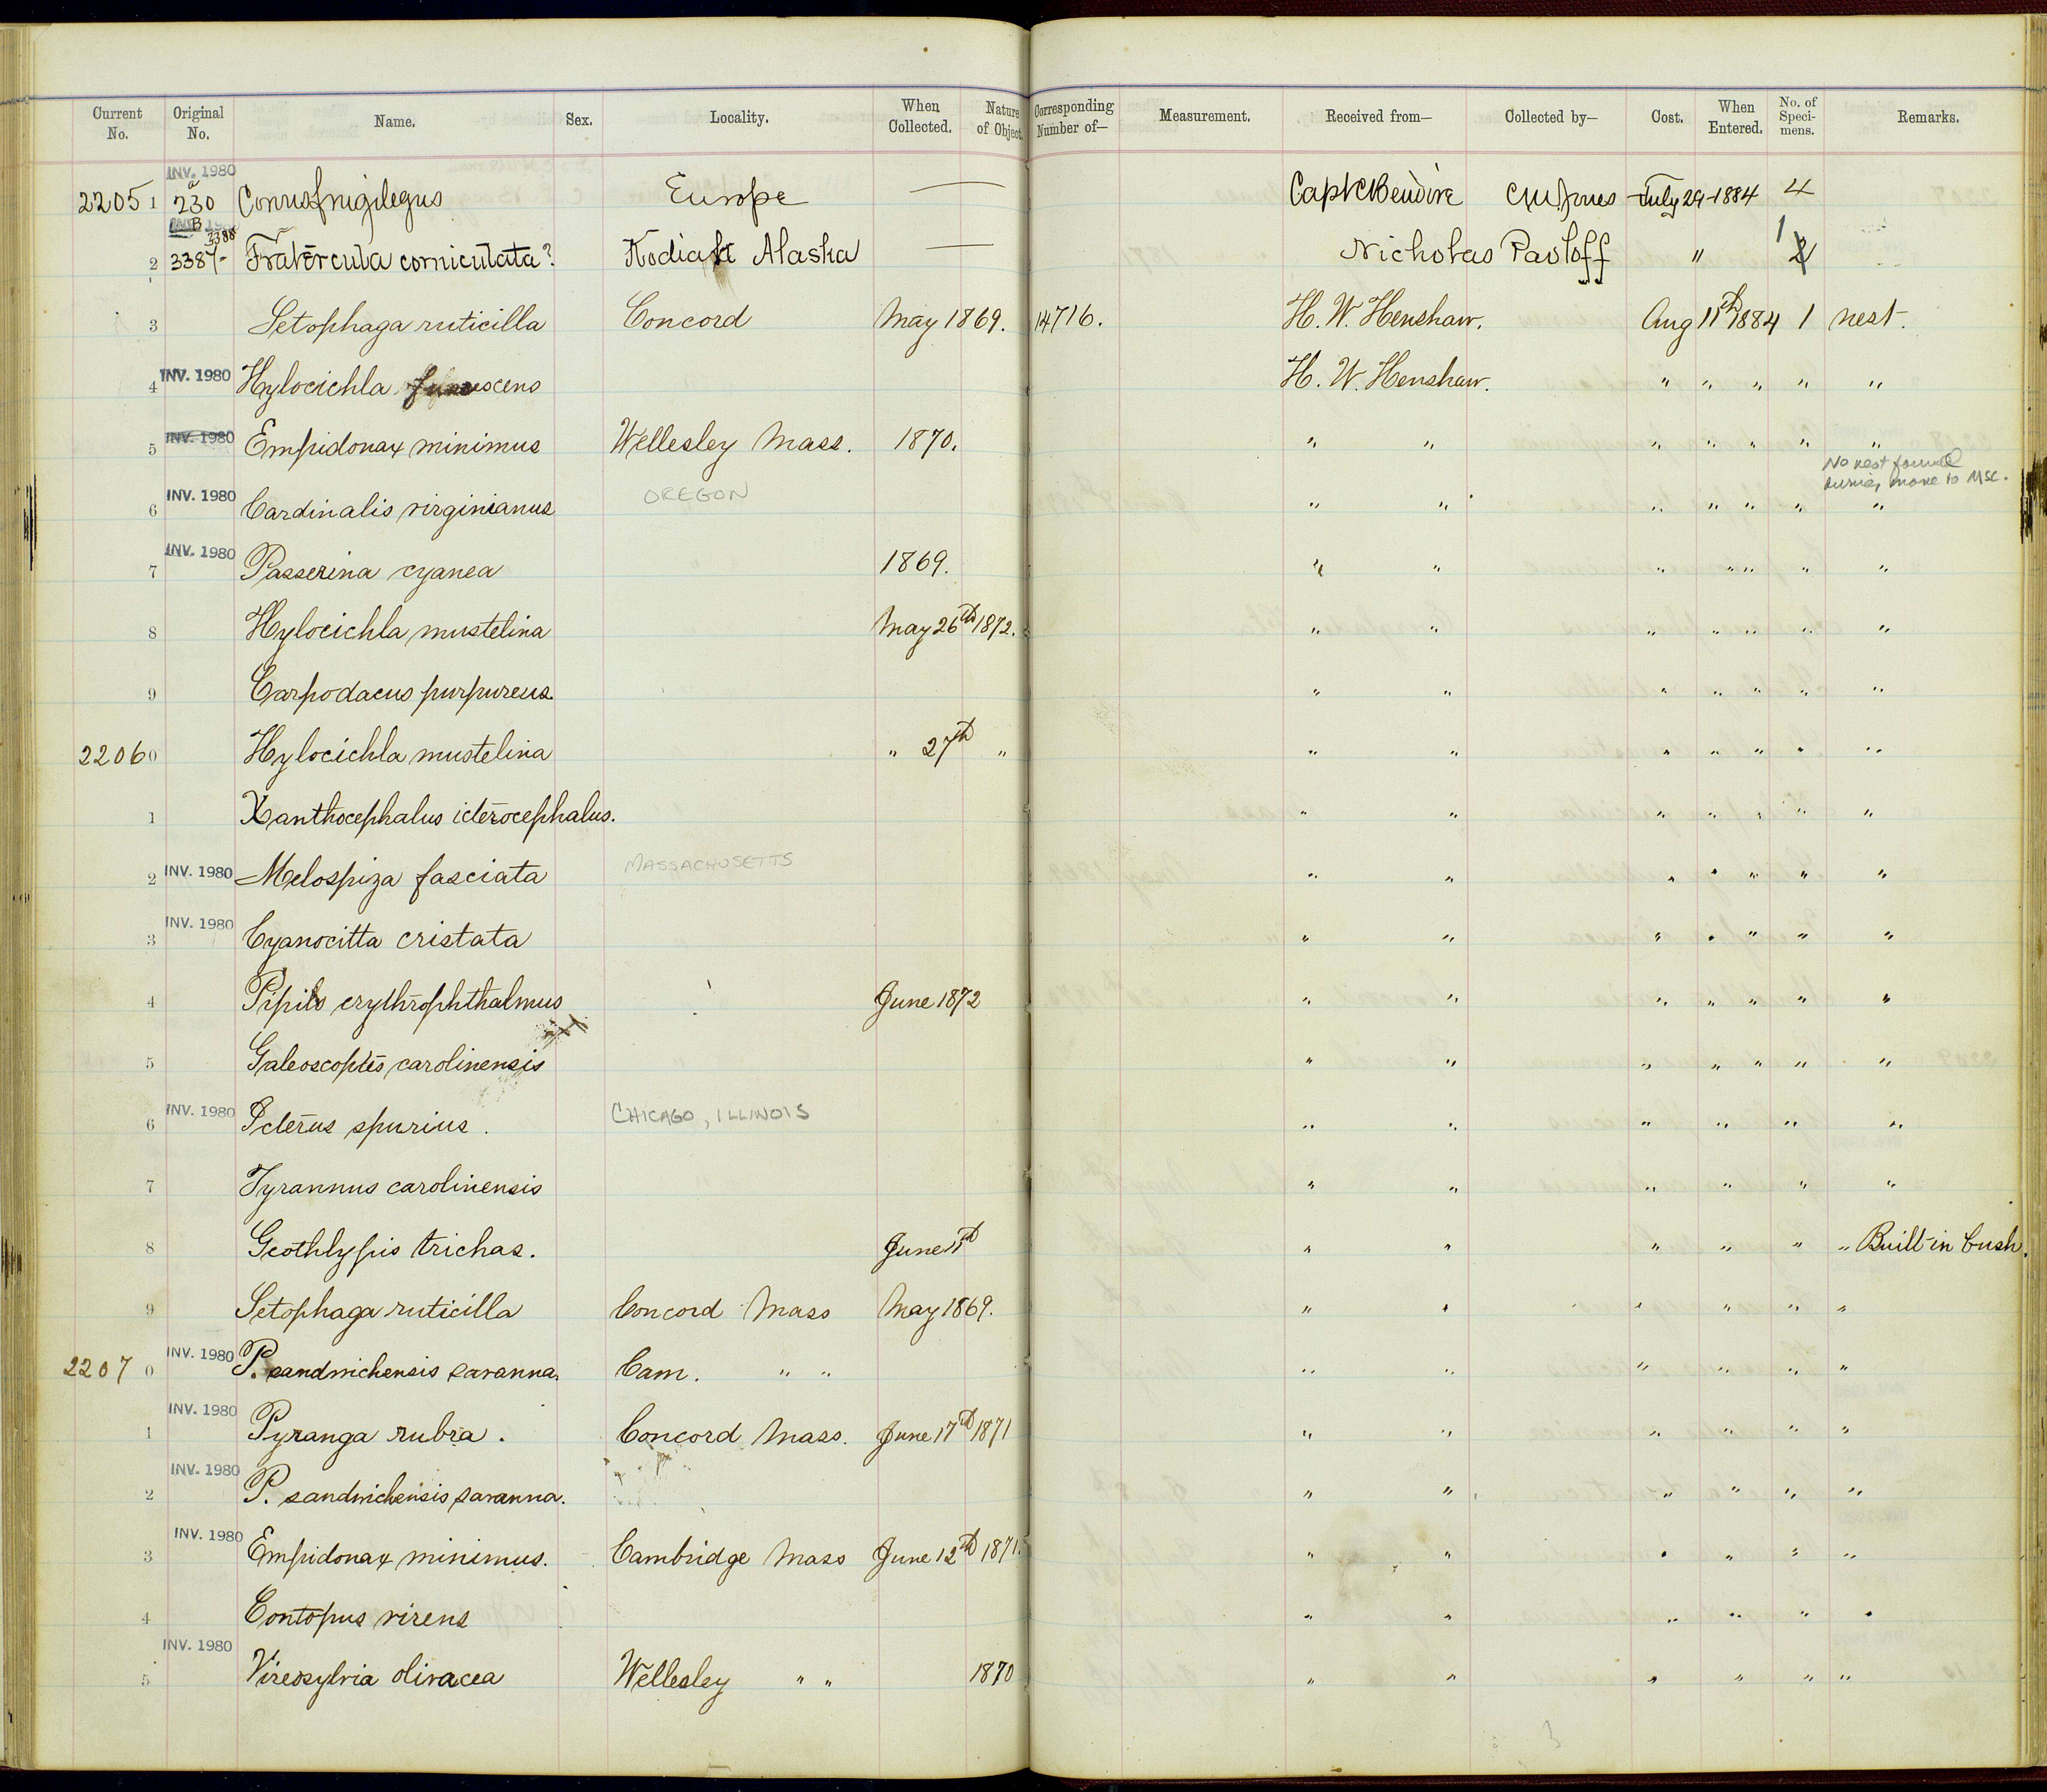 Current No. Original No. Name. Sex. Locality. When Collected. Nature of Object. Corresponding Number of— Measurement. Received from— Collected by— Cost. When Entered. No. of Speci-mens. Remarks.
INV. 1980
22051 230 a Corvus frugilegus Europe — Capt C Bendire July 29-1884 4
B 3388
2 3387- Fratercula corniculata? Kodiak Alaska — Nicholas Pavloff " 1 2
3 Setophaga ruticilla Concord May 1869. 14716. H. W. Henshaw. Aug 11th 1884 1 nest.
4 INV. 1980 Hylocichla H. W. Henshaw. " " " " "
5 INV. 1980 Empidonax minimus Wellesley Mass. 1870. " " " " " " "
No nest found
during move to MSC.
6 INV. 1980 Cardinalis virginianus OREGON " " " " " " "
7 INV. 1980 Passerina cyanea 1869. " " " " " " "
8 Hylocichla mustelina May 26th 1872. " " " " " " "
9 Carpodacus purpureus. " " " " " " "
22060 Hylocichla mustelina " 27th " " " " " " " "
1 Xanthocephalus icterocephalus. " " " " " " "
2 INV. 1980 Melospiza fasciata MASSACHUSETTS " " " " " " "
3 INV. 1980 Cyanocitta cristata " " " " " " "
4 Pipilo erythrophthalmus June 1872 " " " " " " "
5 Galeoscoptes carolinensis " " " " " " "
6 INV. 1980 Icterus spurius. CHICAGO, ILLINOIS " " " " " "
7 Tyrannus carolinensis " " " " " "
8 Geothlypis trichas. June 11th " " " " " " Built in bush.
9 Setophaga ruticilla Concord Mass May 1869. " " " " " "
2207 0 INV. 1980 P. sandwichensis savanna. Cam. " " " " " " " "
1 INV. 1980 Pyranga rubra. Concord Mass. June 17th 1871 " " " " " "
2 INV. 1980 P. sandwichensis savanna. " " " " " "
3 INV. 1980 Empidonax minimus. Cambridge Mass June 12th 1871. " " " " " "
4 Contopus virens " " " " " "
5 INV. 1980 Vireosylvia olivacea Wellesley " " 1870 " " " " " "